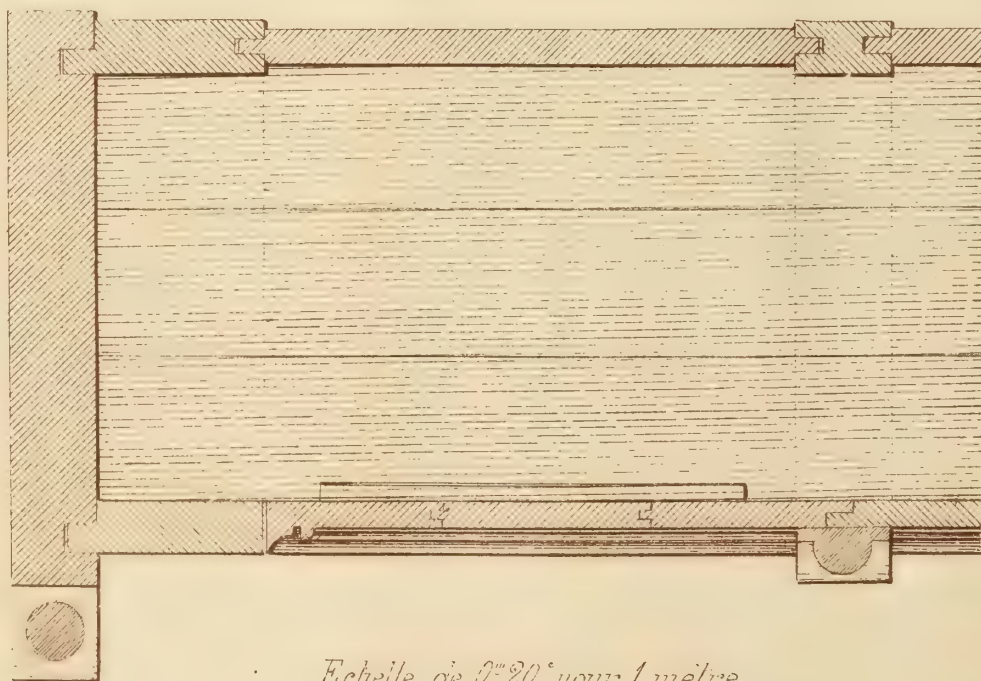 Echelle de 0ᵐ20ᶜ pour 1 mètre